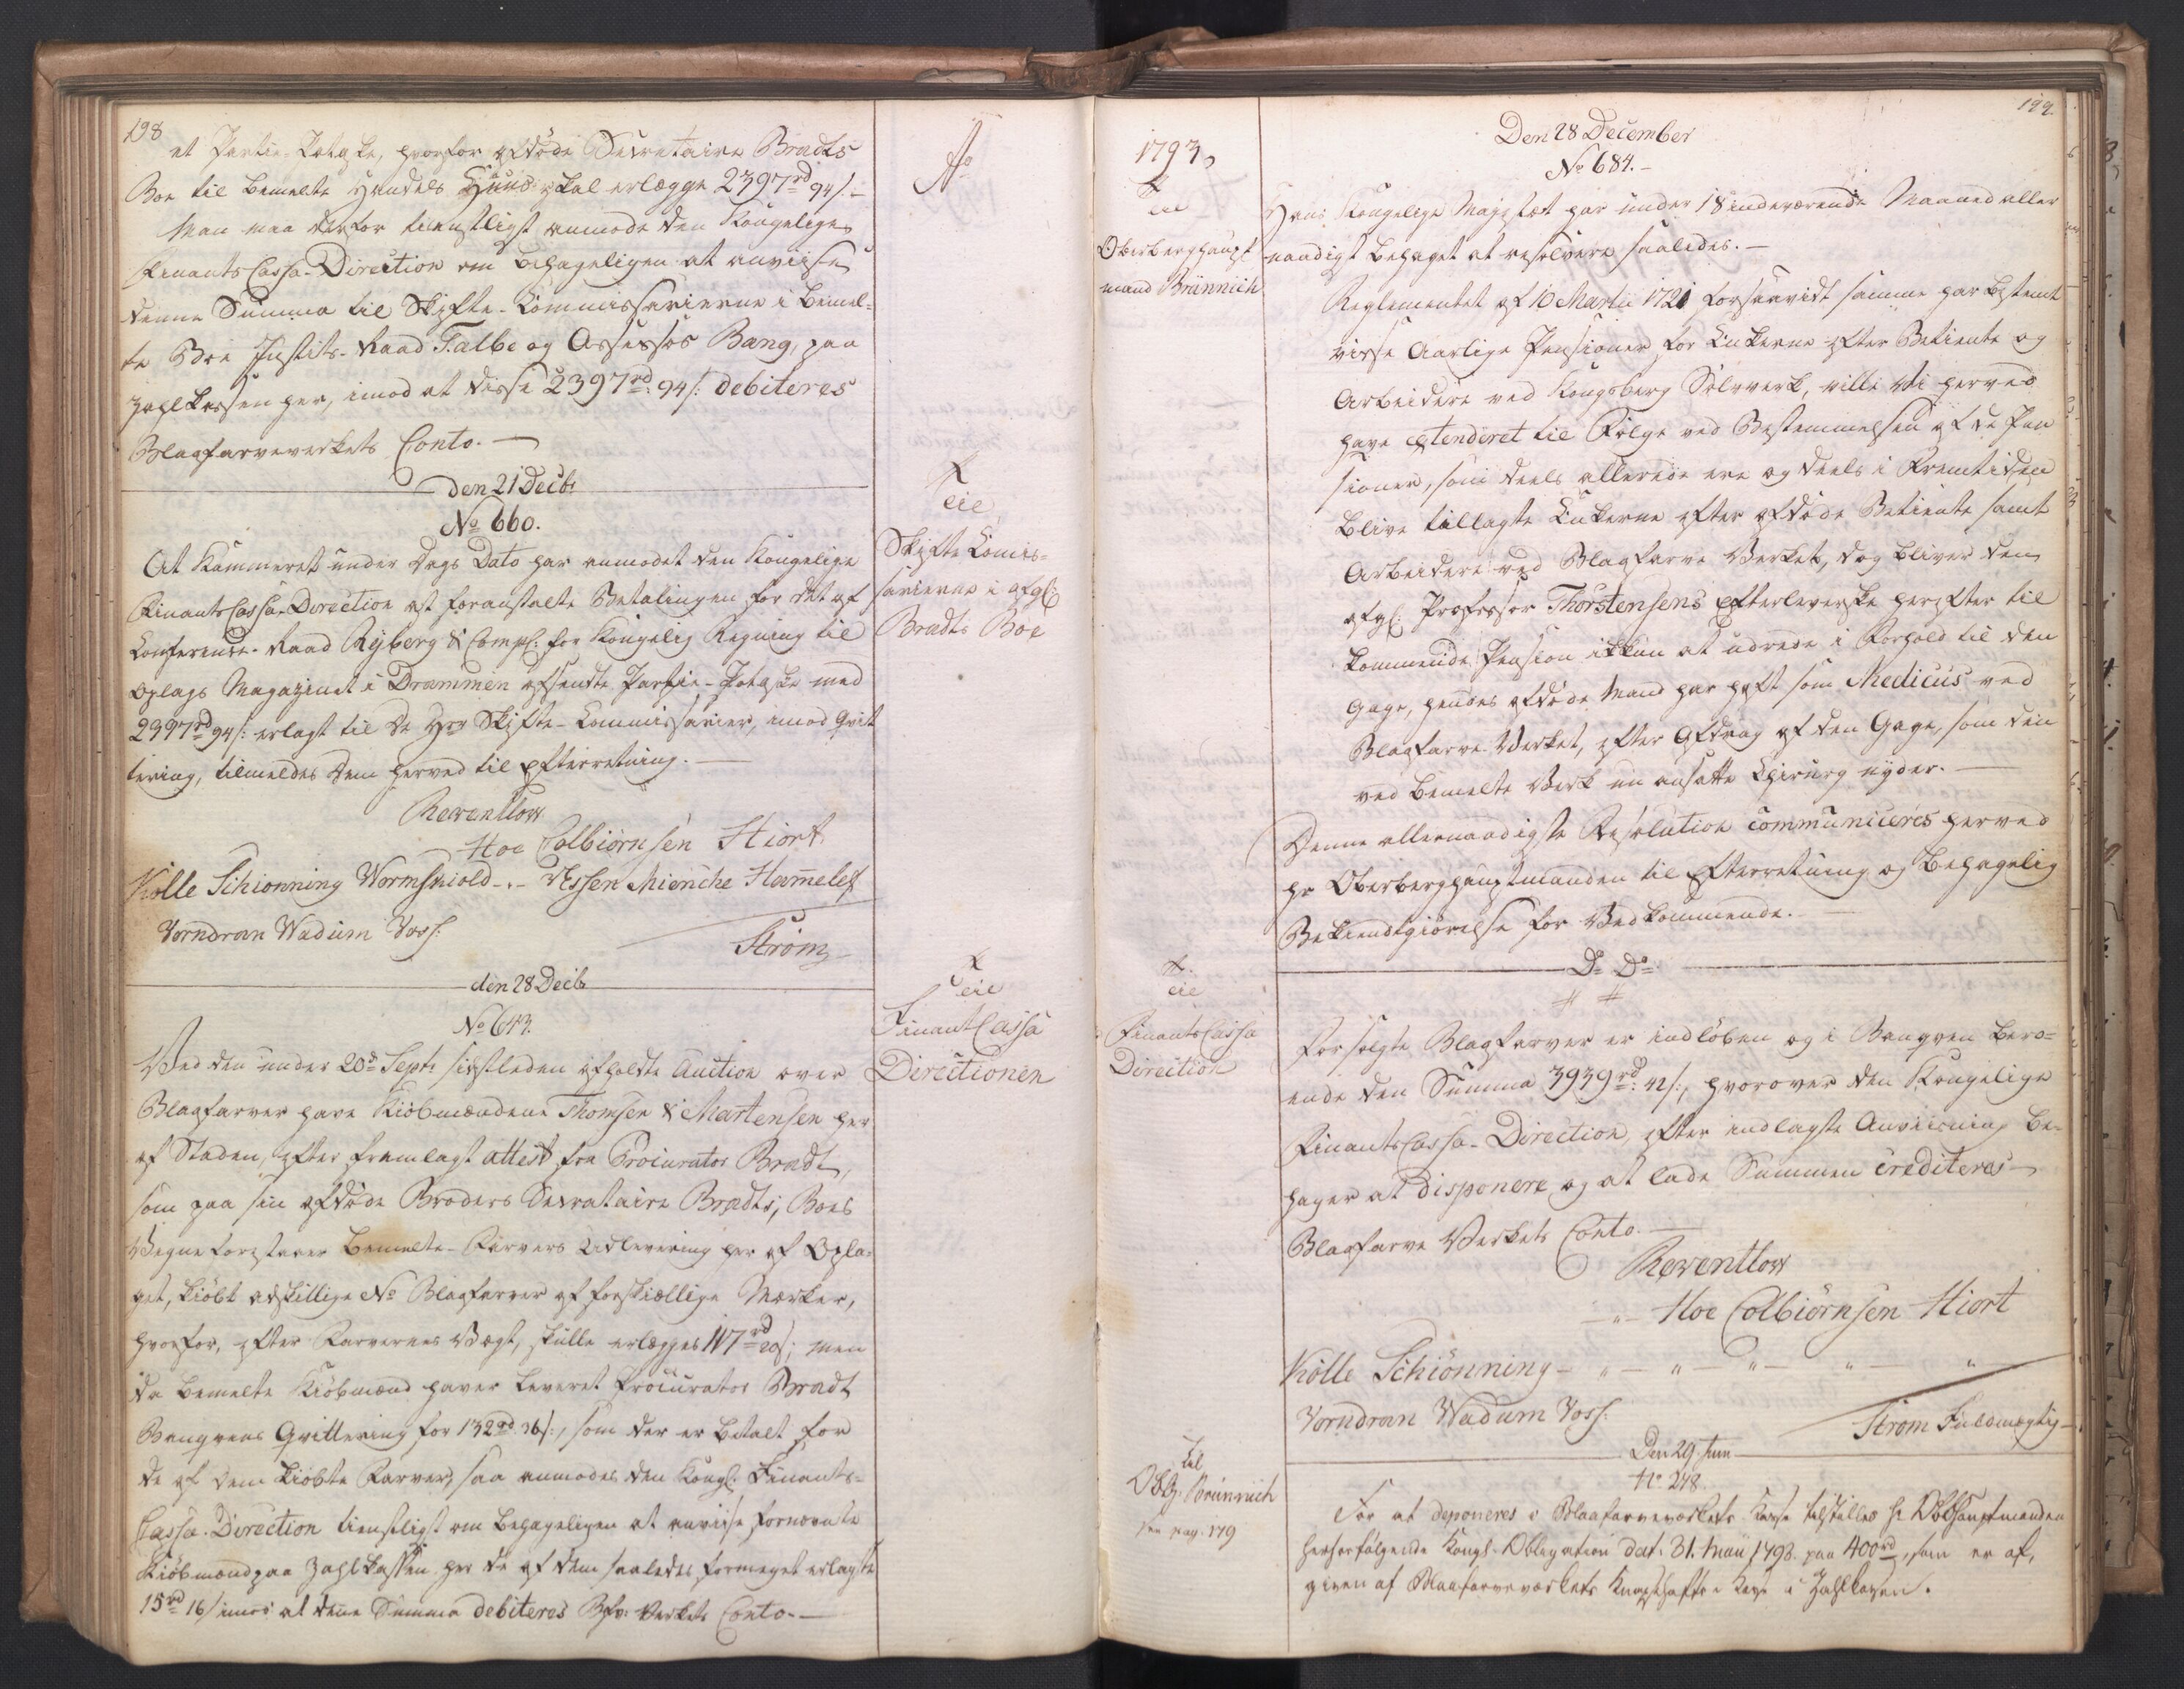 198
et Partie Potaske, hvorfor afdöde Secretaire Bradts
Boe til bemelte Handels Huus skal erlægge 2397 rd 94 s. –
Man maa derfor tienstligst anmode den Kongelige
FinantsCassa-Direction om behageligen at anviise
denne Summa til Skifte-Commissarierne i bemel-
te Boe Justits-Raad Falbe og Assessor Bang, paa
Zahlkassen her, imod at disse 2397 rd: 94 s: debiteres
Blaafarveverkets Conto. –
den 21 Decbr
No 660.
At Kammeret under Dags Dato har anmodet den Kongelige
FinantsCassa-Direction at foranstalte Betalingen for det af
Conference-Raad Ryberg & Comp: for Kongelig Regning til
Oplags Magazinet i Drammen afsendte Partie-Potaske med
2397 rd 94 s: erlagt til de Hrr Skifte-Commissarier, imod Qvit
tering, tilmeldes dem herved til Efterretning. –
Reventlow
Hoe Colbiörnsen Hiort.
Kölle Schionning Wormskiold - „ - Essen Mienche Hammeleff
Vorndran Wadum Voss:
Ström
den 28 Decbr
No 643.
Ved den under 20de Septr sidstleden afholdte Auction over
Blaafarver have Kiöbmændene Thomsen & Martensen her
af Staden, efter fremlagt attest fra Procurator Bradt,
som paa sin afdöde Broders Secretaire Bradts, Boes
Vegne forestaaer bemelte Farvers Udlevering her af Opla-
get, kiöbt adskillige No Blaafarver af forskiællige Mærker,
hvorfor, efter Farvernes Vægt, skulle erlægges 117 rd 20 s; men
da bemelte Kiöbmænd haver leveret Procurator Bradt
Banqvens Qvittering for 132 rd 36 s:, som der er betalt for
de af dem kiöbte Farver, saa anmodes den Kongl: Finants-
Cassa-Direction tienstligst om behageligen at anviise fornævnte
Kiöbmænd paa Zahlkassen her de af dem saaledes formeget erlagte
15 rd 16 s imod at denne Summa debiteres Bfv: Verkets Conto. –
Ao
Til
Skifte Comis-
sarierne i afgl:
Bradts Boe
Til
FinantCassa
Directionen
1793,
Til
Oberberghaupt
mand Brünnich
Til
FinantsCassa
Direction
Til
Obhg. Brünnich
see pag: 179
199.
Den 28 December
No 684. –
Hans Kongelige Majestæt har under 18 indeværende Maaned aller
naadigst behaget at resolvere saaledes. –
Reglementet af 10 Martii 1721 forsaavidt samme har bestemt
visse Aarlige Pensioner for Enkerne efter Betiente og
Arbeidere ved Kongsberg Sölvverk, ville Vi herved
have extenderet til Fölge ved Bestemmelsen af de Pen
sioner, som deels allerede ere og deels i Fremtiden
blive tillagte Enkerne efter afdöde Betiente samt
Arbeidere ved Blaafarve Verket, dog bliver den
afgl: Professor Thorstensens Efterleverske herefter til
kommende Pension ikkun at udrede i Forhold til den
Gage, hendes afdöde Mand har haft som Medicus ved
Blaafarve Verket, efter Afdrag af den Gage, som den
ved bemelte Verk nu ansatte Chirurg nyder. –
Denne allernaadigste Resolution communiceres herved
Hr Oberberghauptmanden til Efterretning og behagelig
Bekiendtgiörelse for Vedkommende. –
Do Do
# #
For solgte Blaafarver er indlöben og i Banqven bero-
ende den Summa 3939 rd: 42 s:, hvorover den Kongelige
FinantsCassa-Direction, efter indlagte Anviisning be-
hager at disponere og at lade Summen crediteres
Blaafarve Verkets Conto. –
Reventlow
- „ - Hoe Colbiörnsen Hiort
Kölle Schiönning - „ - „ - „ - „ - „
Vorndran Wadum Voss:
Ström Fuldmægtig
Den 29 Jun
No 248.
For at deponeres i Blaafarveværkets Kasse tilstilles Hr Obbhauptmanden
herhosfölgende Kongl. Obligation dat: 31. Maii 1793. paa 400 rd, som er af,
given af Blaafarveværkets Knegtskafts Casse i Zahlkassen.